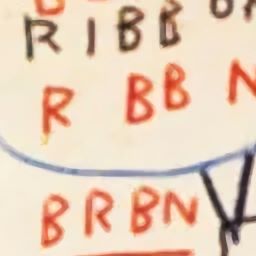 RIBB
R BB N
BRBN